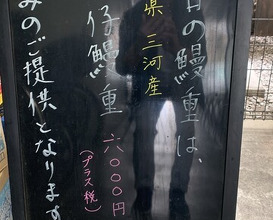 日の鰻重は、
県 三河産
仔鰻重 六〇〇〇円
(プラス税)
みのご提供となります